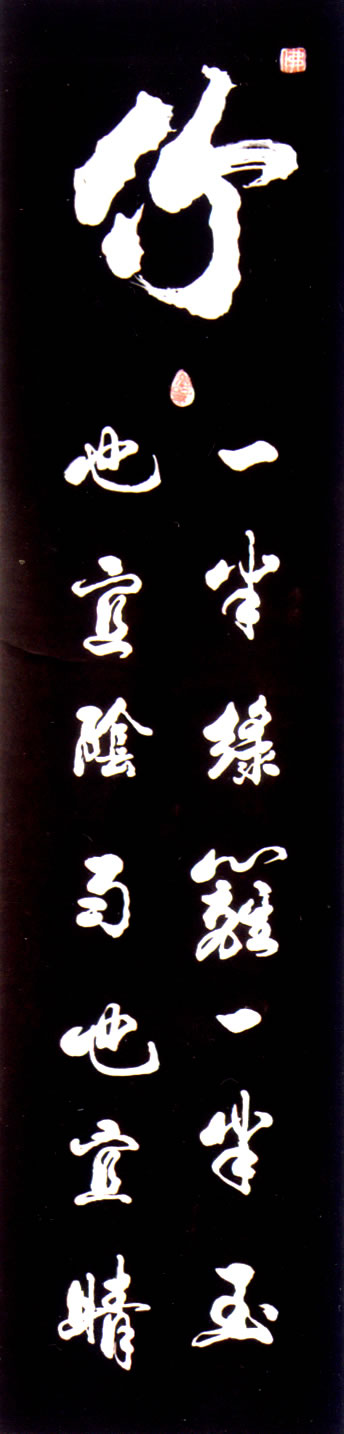 佛
竹
一半綠籬一半玉
也宜陰雨也宜晴